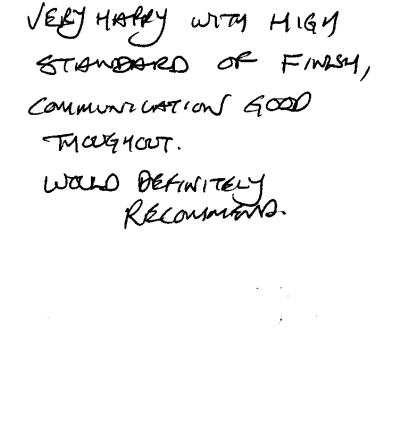 VERY HAPPY WITH HIGH
STANDARD OF FINISH,
COMMUNICATION GOOD
THOUGHOUT.
WOULD DEFINITELY
RECOMMEND.